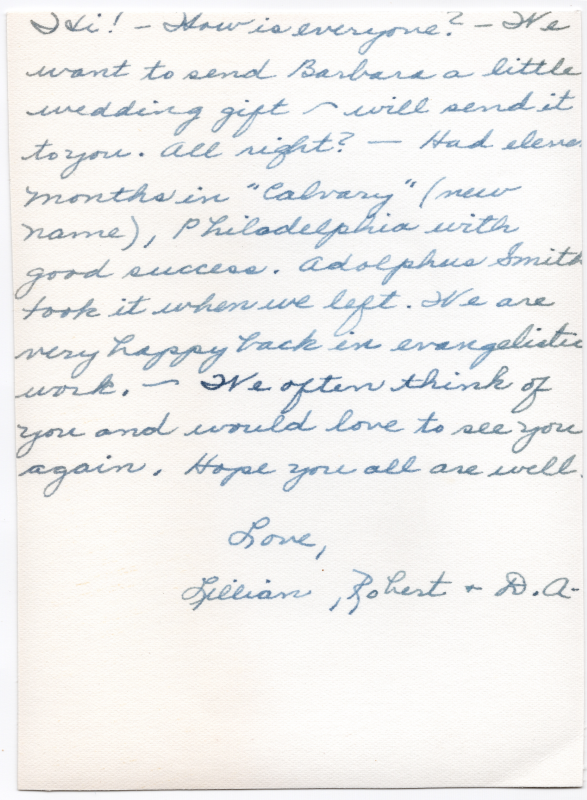 Hi! - How is everyone? - We
want to send Barbara a little
wedding gift ~ will send it
to you. All right? — Had eleven
months in "Calvary" (new
name), Philadelphia with
good success. Adolphus Smith
took it when we left. We are
very happy back in evangelistic
work. ~ We often think of
you and would love to see you
again. Hope you all are well.
Love,
Lillian, Robert + D.A.